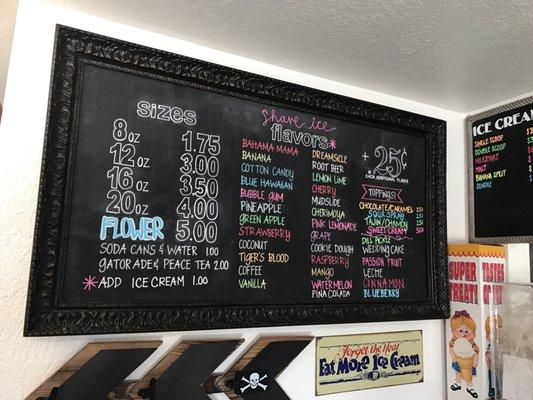 sizes
8 oz 1.75
12 oz 3.00
16 oz 3.50
20 oz 4.00
FLOWER 5.00
SODA CANS & WATER 1.00
GATORADE & PEACE TEA 2.00
*ADD ICE CREAM 1.00
Shave ice
flavors*
BAHAMA MAMA
BANANA
COTTON CANDY
BLUE HAWAIIAN
BUBBLE GUM
PINEAPPLE
GREEN APPLE
STRAWBERRY
COCONUT
TIGER'S BLOOD
COFFEE
VANILLA
DREAMSICLE
ROOT BEER
LEMON LIME
CHERRY
MUDSLIDE
CHERIMOYA
PINK LEMONADE
GRAPE
COOKIE DOUGH
RASPBERRY
MANGO
WATERMELON
PINA COLADA
+ 25¢
EACH ADDITIONAL FLAVOR
TOPPINGS!
CHOCOLATE/CARAMEL 25¢
SOUR SPRAY 25¢
TAJIN/CHAMOY 25¢
SWEET CREAM 50¢
DILL PICKLE
WEDDING CAKE
PASSION FRUIT
LECHE
CINNAMON
BLUEBERRY
ICE CREAM
SINGLE SCOOP
DOUBLE SCOOP
MILKSHAKE
MALT
BANANA SPLIT
SUNDAE
SUPER
TREAT!
Forget the Heat
EAT More ICE
Forget the Heat
EAT MORE ICE CREAM.